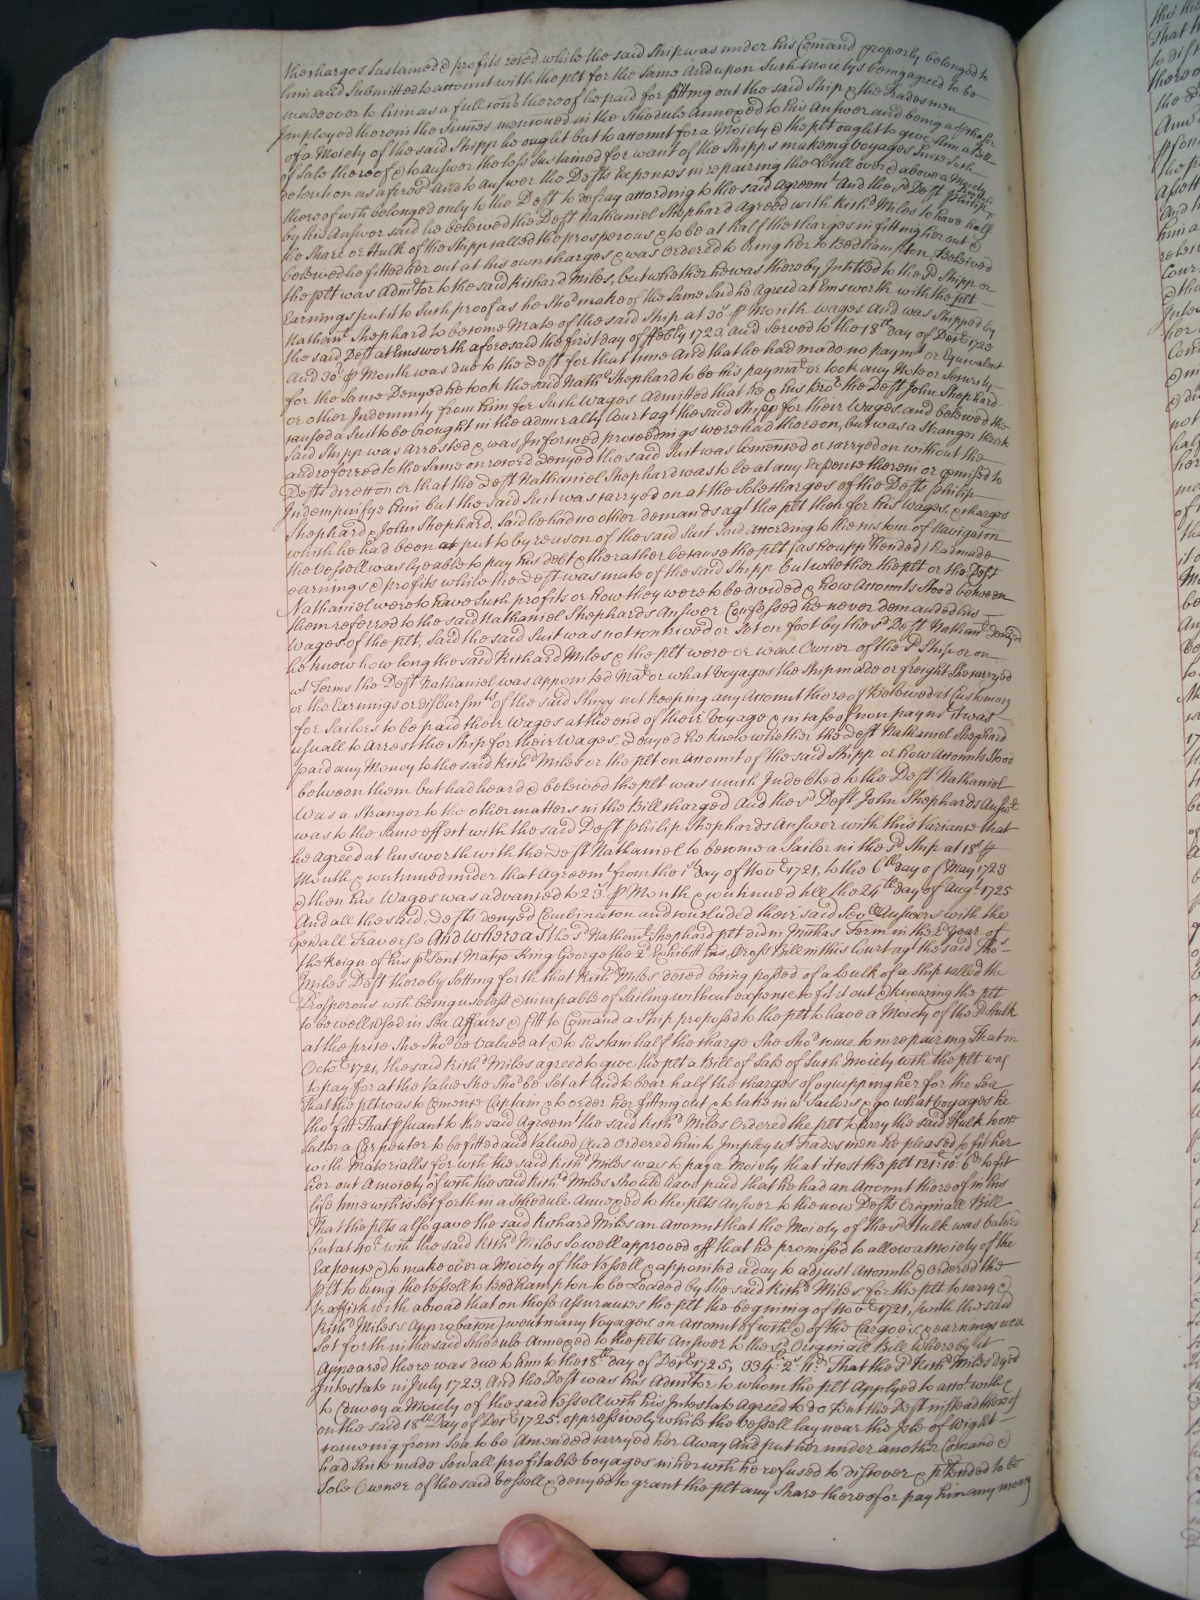 the charges sustained & profits reced while the said Ship was under his Comand properly belonged to
him and Submitted to account with the plt for the same And upon such Moietys being agreed to be
made over to him as a full
Imployed therein the Summes mentioned in the Schedule Annexed to his Answer and being
of a Moiety of the said Shipp he ought but to account for a Moiety & the plt ought to give him a Bill
of Sale thereof & to Answer the loss sustained for want of the Shipps making voyages since such
detention as aforesd And to Answer the Defts Expences in repairing the Hull over & above a Moiety
thereof wch belonged only to the Deft to defray according to the said Agreemt And the sd Deft Philip
by his Answer said he beleived the Deft Nathaniel Shephard Agreed with Richd Miles to have half
the Share or Hulk of the Shipp called the prosperous & to be at half the charges in fitting her out &
beleived he fitted her out at his own charges & was Ordered to bring her to Bedhampton, Beleived
the plt was Admor to the said Richard Miles, but whether he was thereby Intitled to the sd Shipp or
Earnings put it to such proof as he shod make of the same Said he Agreed at Emsworth with the plt
Nathanl Shephard to become Mate of the said Ship at 30s P Month wages And was Shipped by
the said Deft at Emsworth aforesaid the first day of ffebry 1723 and Served to the 18th day of Decr 1725
And 30s P Month was due to the Deft for that time And that he had made no paymt or Equivalent
for the same Denyed he took the said Nathl Shephard to be his paymar or took any Note or Security
or other Indemnity from him for such Wages Admitted that he & his Bror the Deft John Shephard
caused a Suit to be brought in the Admiralty Court agt the said Shipp for their Wages and beleived the
said Shipp was Arrested & was Informed proceedings were had thereon, but was a Stranger thereto
and referred to the same on record Denyed the said Suit was comenced or carryed on without the
Defts direction or that the Deft Nathaniel Shephard was to be at any Expence therein or promised to
Indempnifye him but the said Suit was carryed on at the Sole charges of the Defts Philip
Shephard & John Shephard, Said he had no other demands agt the plt then for his wages, & charges
which he had been put to by reason of the said Suit Said according to the custom of Navigation
the Vessell was lyeable to pay his debt & the rather because the plt (as he apprhended) had made
earnings & profits while the Deft was mate of the said Shipp but whether the plt or the Deft
Nathaniel were to have such profits or how they were to be divided & how Accounts stood between
them referred to the said Nathaniel Shephards Answer Confessed he never demanded his
Wages of the plt, Said the said Suit was not contrived or set on foot by the sd Deft Nathanl Denyed
he knew how long the said Richard Miles & the plt were or was Owner of the sd Ship or on
wt Terms the Deft Nathaniel was appointed Mar or what Voyages the Ship made or freight She carryed
or the Earnings or Disbursmts of the said Shipp not keeping any Account thereof Beleived it Customary
for Sailers to be paid their Wages at the end of their Voyage & in case of non paymt it was
usuall to Arrest the Ship for their Wages, Denyed he knew whether the Deft Nathaniel Shephard
paid any Money to the said Richd Miles or the plt on Account of the said Shipp or how Accounts stood
between them but had heard & beleived the plt was much Indebted to the Deft Nathaniel
Was a Stranger to the other matters in the Bill charged And the sd Deft John Shephards Answr
was to the same effect with the said Deft Philip Shephards Answer with this Variance that
he Agreed at Emsworth with the Deft Nathaniel to become a Sailor in the sd Ship at 18s P
Month & continued under that Agreemt from the 1st day of Novr 1721, to the 6th day of May 1723
& then his Wages was advanced to 23s P Month & continued till the 24th day of Augt 1725
And all the said Defts denyed Combination and concluded their said Sevll Answers with the
Genall Traverse And whereas the sd Nathanl Shephard plt did in Michas Term in the 2d year of
the Reign of his psent Matye King George the 2d Exhibitt his Cross Bill in this Court agt the said Thos
Miles Deft thereby setting forth that Richd Miles deced being possed of a bulk of a Ship called the
Prosperous wch being useless & uncapable of Sailing without expense to fit it out & knowing the plt
to be well used in Sea Affairs & fitt to Comand a Ship proposed to the plt to have a Moiety of the sd Hulk
at the price She shod be Valued at & to Sustain half the charge She shod come to in repairing That in
Octor 1721, the said Richd Miles agreed to give the plt a Bill of Sale of such Moiety wch the plt was
to pay for at the Value She shod be set at And to bear half the charges of equipping her for the Sea
That the plt was to comence Captain & to order her fitting out & to take in wt Sailors & go what voyages he
tho fitt That psuant to the said Agreemt the said Richd Miles Ordered the plt to carry the said Hulk to one
a Carpenter to be fitted and Valued And Ordered him to Imploy wt Trades men he pleased to fit her
with Materialls for wch the said Richd Miles was to pay a Moiety that it cost the plt 121: 10s 6d to fit
her out A moiety of wch the said Richd Miles should have paid that he had an Account thereof in his
life time wch is set forth in a schedule Annexed to the plts Answer to the now Defts Originall Bill
That the plts also gave the said Richard Miles an Account that the Moiety of the sd Hulk was valued
but at 40s wch the said Richd Miles so well approved off that he promised to allow a Moiety of the
Expence & to make over a Moiety of the Vessell & appointed a day to adjust Accounts & Ordered the
plt to bring the Vessell to Bedhampton to be Loaded by the said Richd Miles, for the plt to carry &
traffick wth abroad that on those Assurances the plt the begining of Novr 1721, (with the said
Richd Miles's Approbation) went many Voyages on Account of wch & of the Cargoeis & earnings were
set forth in the said schedule Annexed to the plts Answer to the sd Originall Bill Whereby it
Appeared there was due to him to the 18th day of Decr 1725, 334: 2s: That the sd Richd Miles dyed
Intestate in July 1723, And the Deft was his Admtor to whom the plt Applyed to acct with &
to Convey a Moiety of the said Vessell wch his Intestate Agreed to do But the Deft instead thereof
on the said 18th Day of Decr 1725, oppressively while the Vessell lay near the Isle of Wight
coming from Sea to be Amended carryed her Away And put her under another Comand &
had since made sevall profitable voyages in her wch he refused to discover & ptended to be
Sole Owner of the said Vessell & denyed to grant the plt any Share thereof or pay him any mony